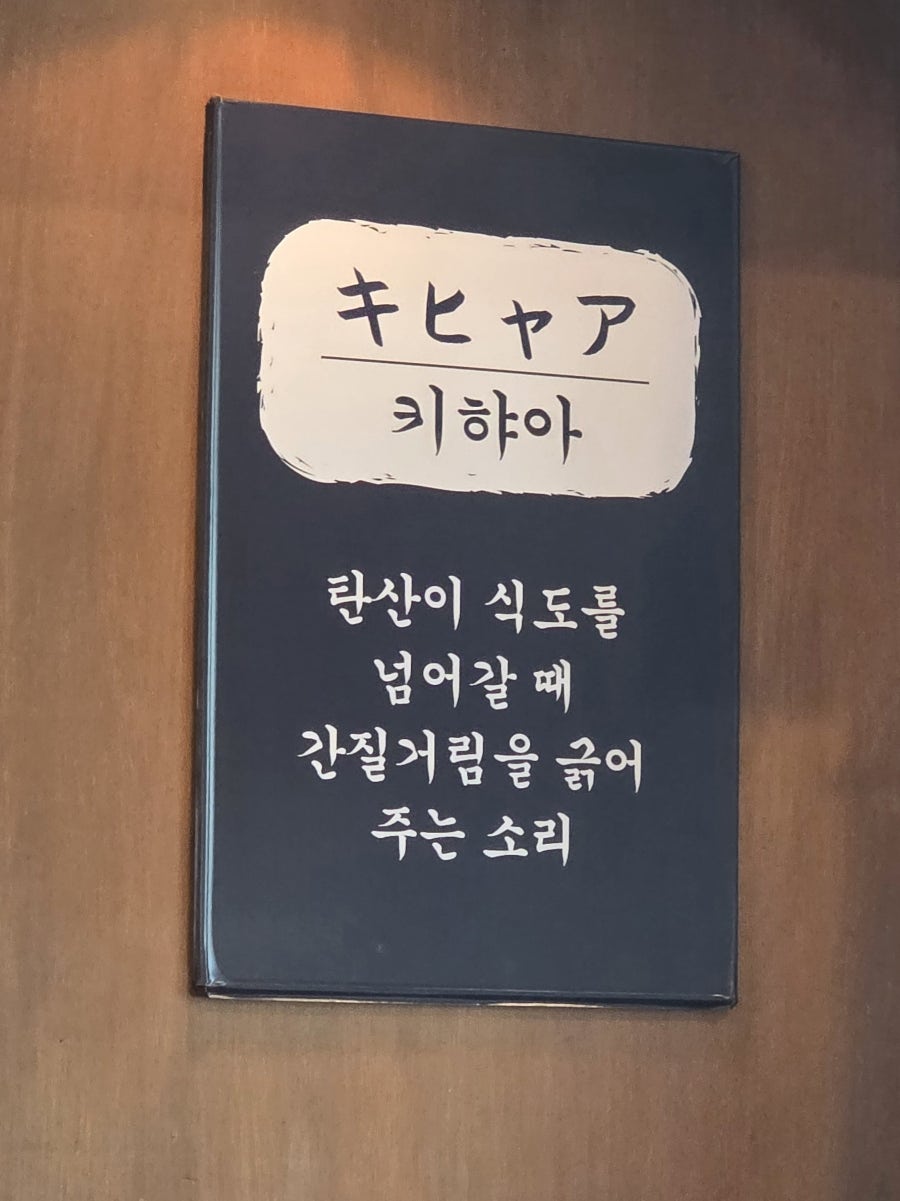 キヒャア
키햐아
탄산이 식도를
넘어갈 때
간질거림을 긁어
주는 소리